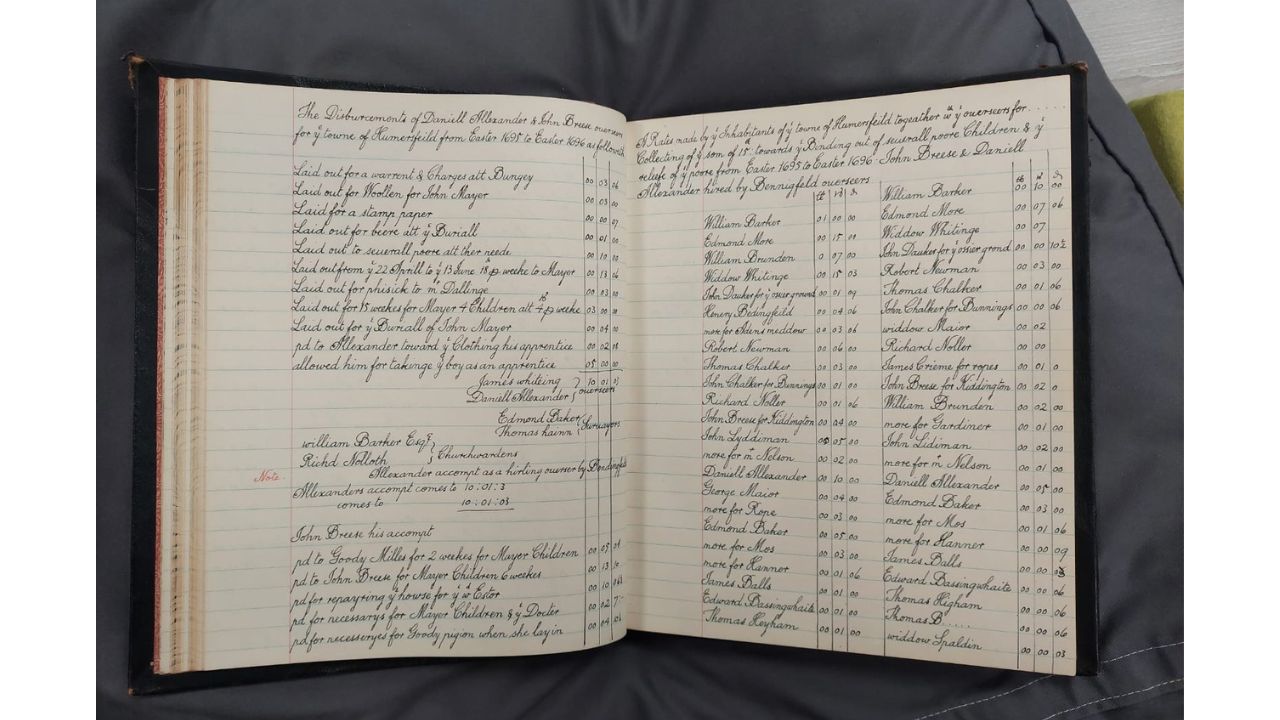 The Disburcements of Daniell Allexander & John Breese overseers
for ỹ towne of Humersfeild from Easter 1695 to Easter 1696 as followeth
Laid out for a warrent & Charges att Bungey 00 03 06
Laid out for Woollen for John Mayor 00 03 00
Laid for a stamp paper 00 00 07
Laid out for beere att ỹ Buriall 00 01 00
Laid out to seuerall poore att ther neede 00 10 00
Laid out from ỹ 22 Aprill to ỹ 13 June 18ᵈ p weeke to Mayor 00 13 06
Laid out for phisick to mʳ Dallinge 00 03 00
Laid out for 15 weekes for Mayer 4 Children att 4ˢ p weeke 03 00 00
Laid out for ỹ Buriall of John Mayor 00 04 00
pd to Allexander toward ỹ Clothing his apprentice 00 02
allowed him for takinge ỹ boy as an apprentice 05 00 00
James whiteing } 10 01 03
Daniell Allexander } overseers
Edmond Baker
Thomas hainn { Survayors
william Barker Esqʳ }
Richd Nolloth } Churchwardens
Note. Allexander accompt as a hirting overser by Bendingfeld
Allexanders accompt comes to 10:01:3
comes to 10:01:03
John Breese his accompt
pd to Goody Mills for 2 weekes for Mayer Children 00 05 04
pd to John Breese for Mayer Children 6 weekes 00 13
pd for repayring ỹ howse for ỹ w Estor 00 10
pd for necessarys for Mayer Children & ỹ Docter 00 02 7
pd for necesseryes for Goody pigion when she lay in 00 04
A Rates made by ỹ Inhabitants of ỹ towne of Humersfeild togeather wᵗʰ ỹ overseers for......
Collecting of ỹ som of 15ˡ towards ỹ Binding out of seuerall poore Children & ỹ
releife of ỹ poore from Easter 1695 to Easter 1696. John Breese & Daniell
Allexander hired by Bennigfeld overseers
William Barker 01 00 00
Edmond More 00 15 00
William Brunden 0 07 00
Widdow Whitinge 00 15 03
John Dauker for ỹ osier ground 00 01 09
Henery Bedingfeild 00 04 06
more for Adins meddow 00 03 06
Robert Newman 00 06 00
Thomas Chalker 00 03 00
John Chalker for Bunnings 00 01 00
Richard Noller 00 01 06
John Breese for Kiddington 00 04 00
John Lyddiman 00 05 00
more for mʳ Nelson 00 02 00
Daniell Allexander 00 10 00
George Maior 00 04 00
more for Rope 00 03 00
Edmond Baker 00 05 00
more for Mos 00 03 00
more for Hannor 00 01 06
James Balls 00 01 00
Edward Bassingwhaite 00 01 00
Thomas Heyham 00 01 00
William Barker 00 10 00
Edmond More 00 07 06
Widdow Whitinge 00 07
John Dauker for ỹ osier grond 00 00 10½
Robert Newman 00 03 00
Thomas Chalker 00 01 06
John Chalker for Bunnings 00 00 06
widdow Maior 00 02
Richard Noller 00 00
James Crieme for ropes 00 01 0
John Breese for Kiddington 00 02 0
William Brunden 00 02 00
more for Gardiner 00 01 00
John Lidiman 00 02 00
more for mʳ Nelson 00 01 00
Daniell Allexander 00 05 00
Edmond Baker 00 03 00
more for Mos 00 01 06
more for Hanner 00 00 09
James Balls 00 00
Edward Bassingwhaite 00 00 06
Thomas Higham 00 00 06
Thomas B..... 00 00 06
widdow Spaldin 00 00 03